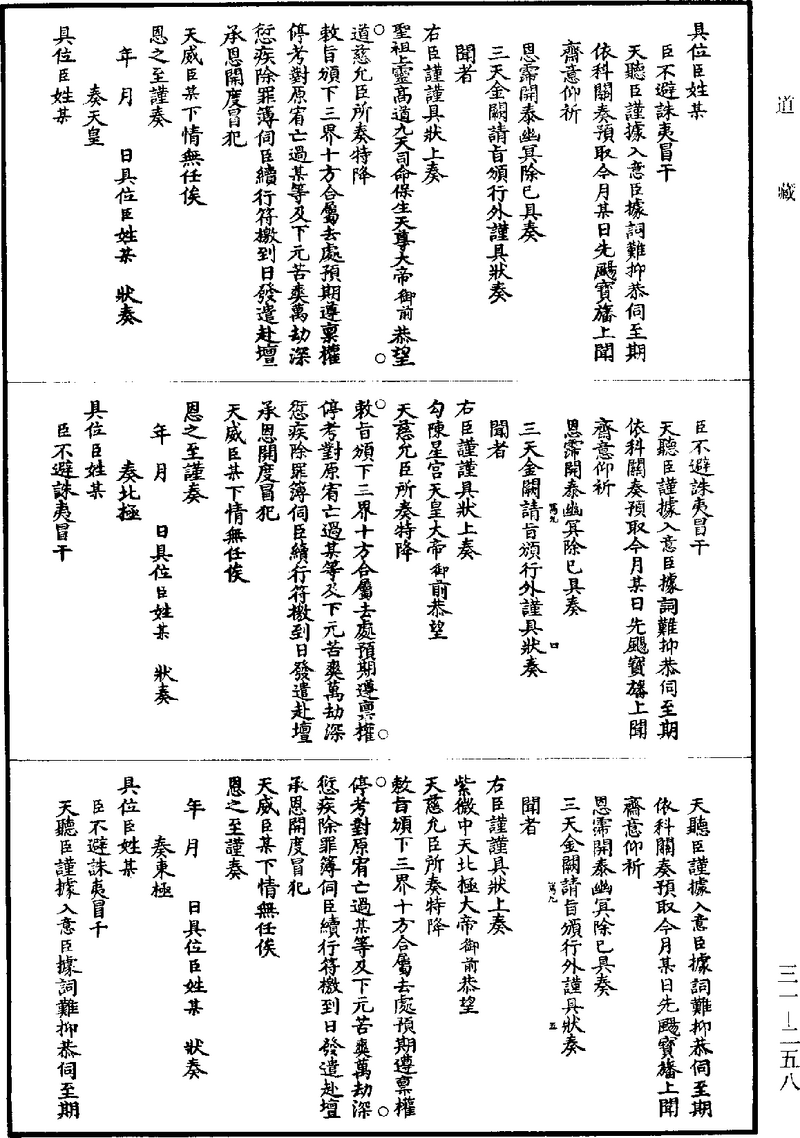 道藏
具位臣姓某
臣不避誅夷冒干
天聽臣謹據入意臣據詞難抑恭伺至期
依科關奏預取今月某日先颺寶旛上聞
齋意仰祈
恩霈開泰幽冥除已具奏
三天金闕請旨頒行外謹具狀奏
聞者
右臣謹謹具狀上奏
聖祖上靈高道九天司命保生天尊大帝御前恭望
道慈允臣所奏特降
敕旨頒下三界十方合屬去處預期遵稟權
停考對原宥亡過某等及下元苦爽萬劫深
愆疾除罪簿伺臣續行符檄到日發遣赴壇
承恩開度冒犯
天威臣某下情無任俟
恩之至謹奏
年 月 日具位臣姓某 狀奏
奏天皇
具位臣姓某
臣不避誅夷冒干
天聽臣謹據入意臣據詞難抑恭伺至期
依科關奏預取今月某日先颺寶旛上聞
齋意仰祈
恩霈開泰幽冥除已具奏
三天金闕請旨頒行外謹具狀奏
聞者
右臣謹謹具狀上奏
勾陳星宮天皇大帝御前恭望
天慈允臣所奏特降
敕旨頒下三界十方合屬去處預期遵稟權
停考對原宥亡過某等及下元苦爽萬劫深
愆疾除罪簿伺臣續行符檄到日發遣赴壇
承恩開度冒犯
天威臣某下情無任俟
恩之至謹奏
年 月 日具位臣姓某 狀奏
奏北極
具位臣姓某
臣不避誅夷冒干
天聽臣謹據入意臣據詞難抑恭伺至期
依科關奏預取今月某日先颺寶旛上聞
齋意仰祈
恩霈開泰幽冥除已具奏
三天金闕請旨頒行外謹具狀奏
聞者
右臣謹謹具狀上奏
紫微中天北極大帝御前恭望
天慈允臣所奏特降
敕旨頒下三界十方合屬去處預期遵稟權
停考對原宥亡過某等及下元苦爽萬劫深
愆疾除罪簿伺臣續行符檄到日發遣赴壇
承恩開度冒犯
天威臣某下情無任俟
恩之至謹奏
年 月 日具位臣姓某 狀奏
奏東極
具位臣姓某
臣不避誅夷冒干
天聽臣謹據入意臣據詞難抑恭伺至期
三一—二五八